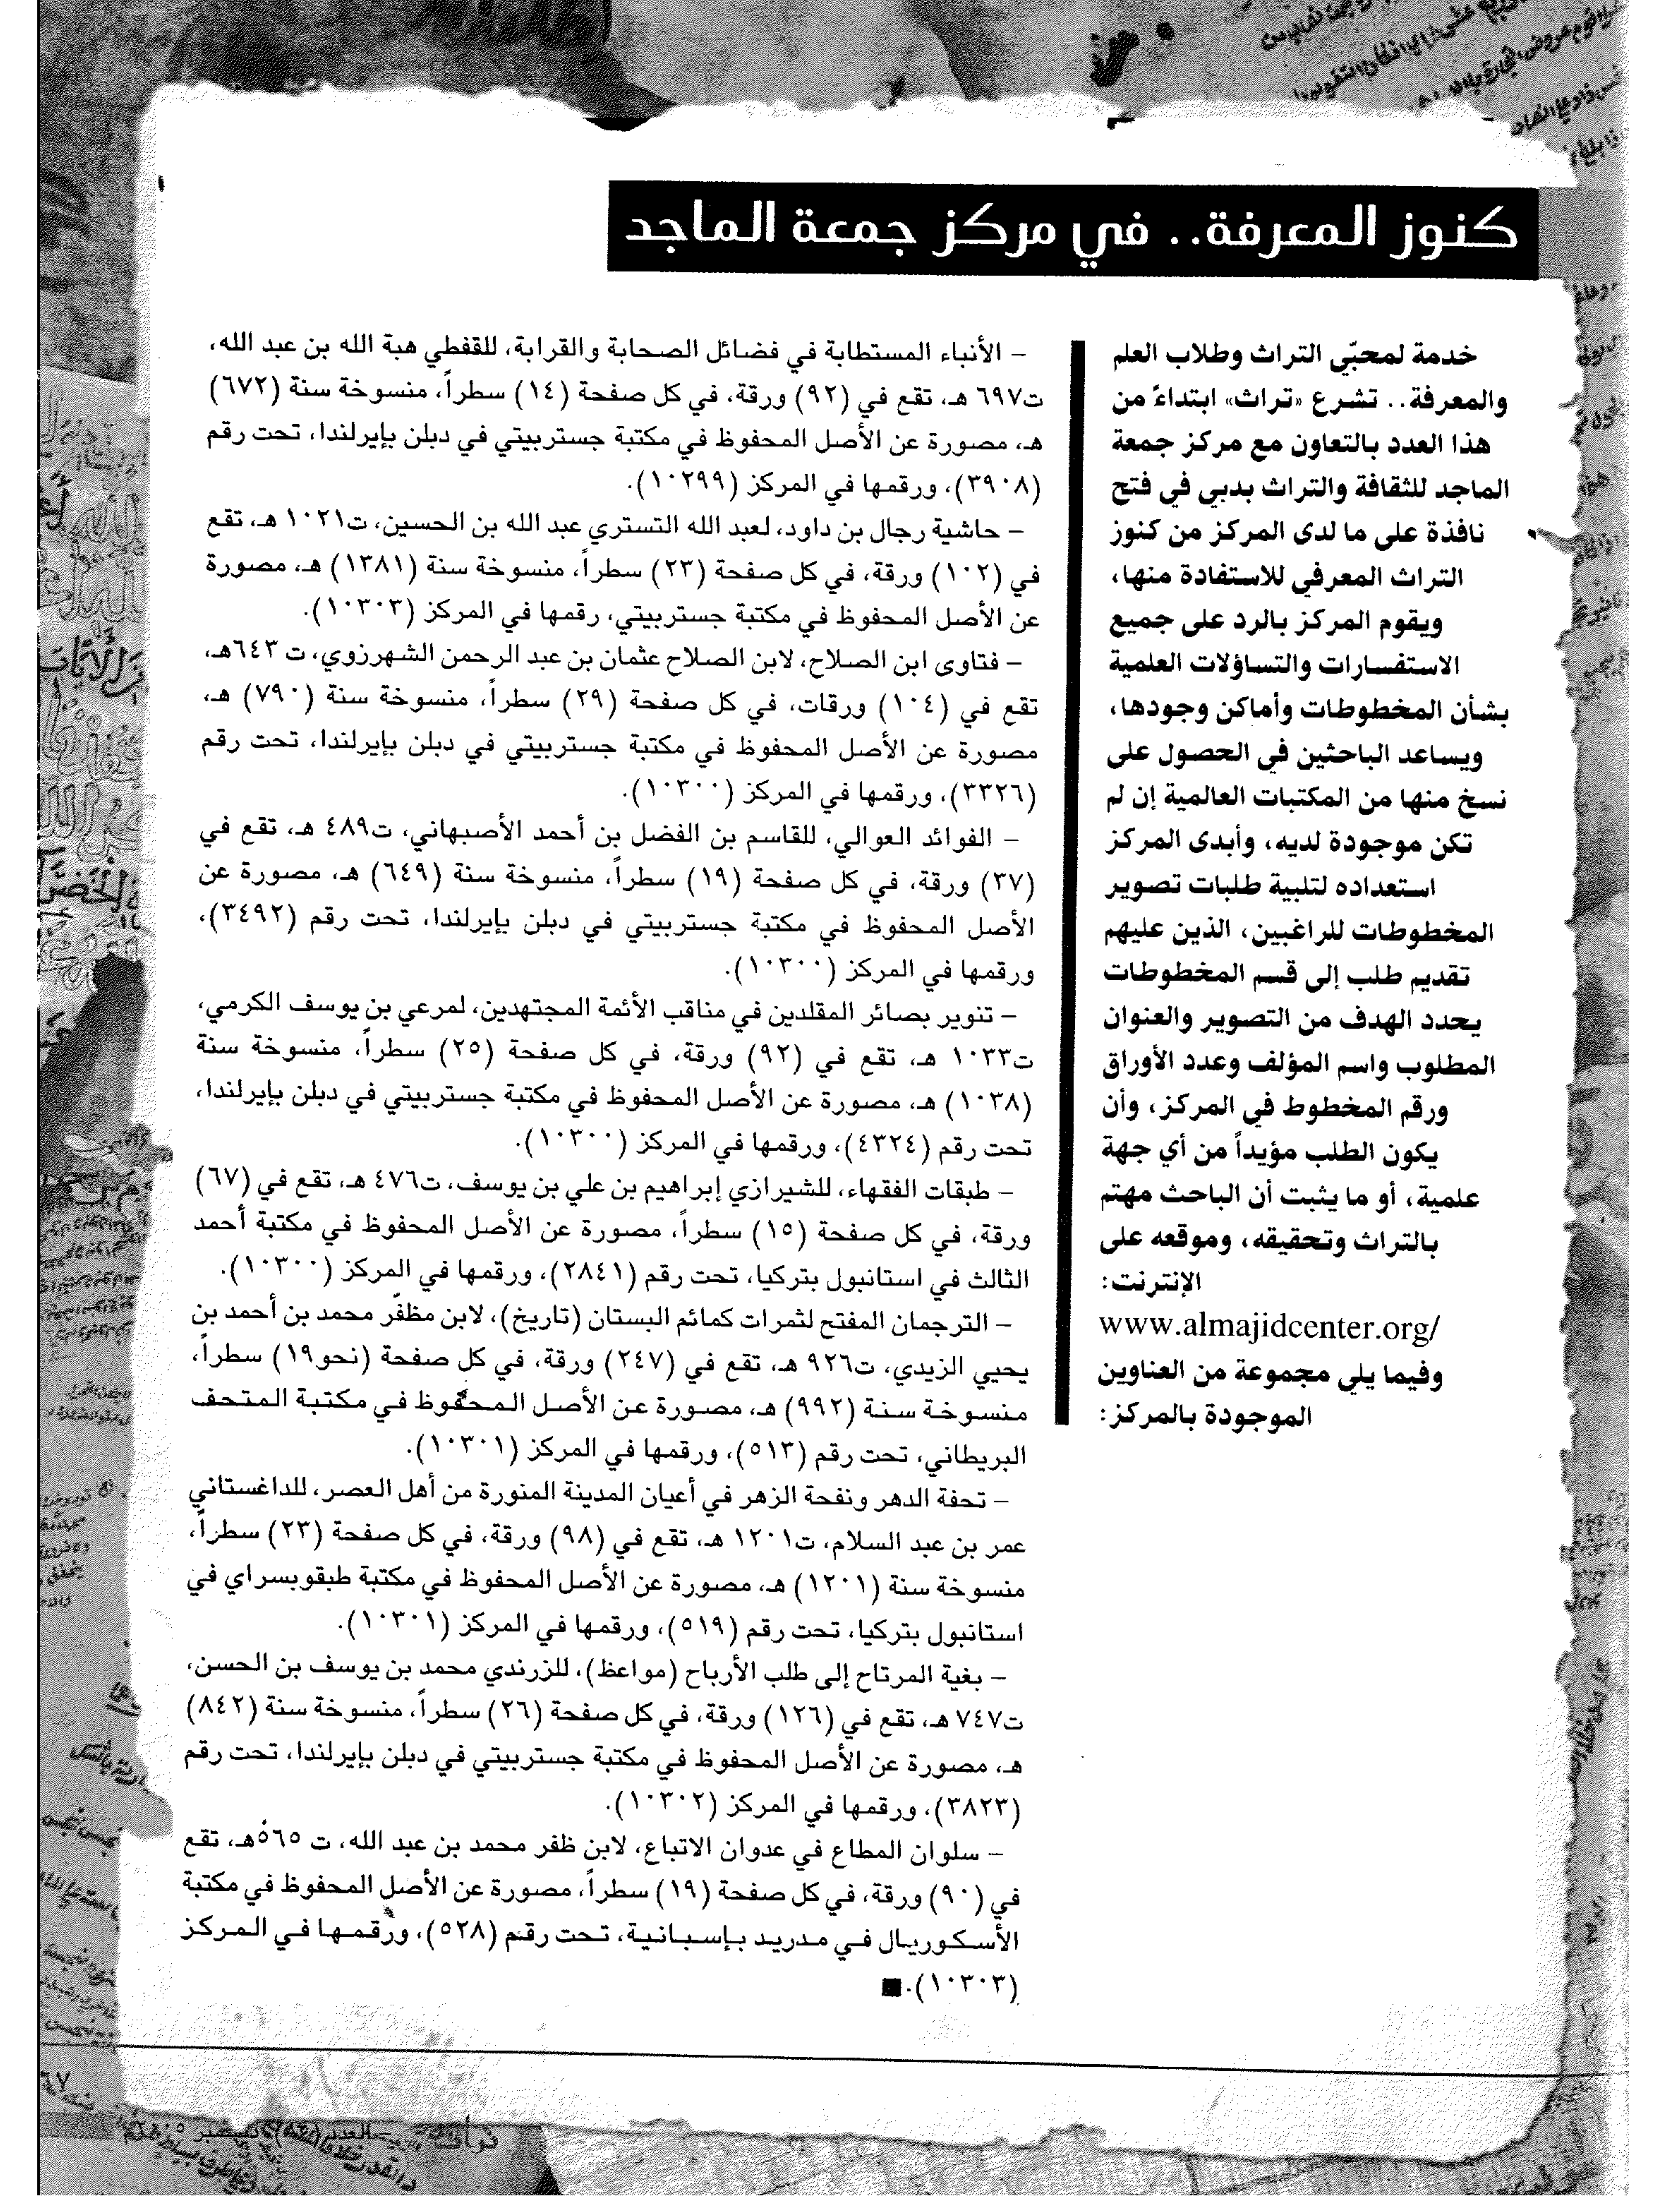 كنوز المعرفة.. في مركز جمعة الماجد
خدمة لمحبّي التراث وطلاب العلم
والمعرفة.. تشرع «تراث» ابتداءً من
هذا العدد بالتعاون مع مركز جمعة
الماجد للثقافة والتراث بدبي في فتح
نافذة على ما لدى المركز من كنوز
التراث المعرفي للاستفادة منها،
ويقوم المركز بالرد على جميع
الاستفسارات والتساؤلات العلمية
بشأن المخطوطات وأماكن وجودها،
ويساعد الباحثين في الحصول على
نسخ منها من المكتبات العالمية إن لم
تكن موجودة لديه، وأبدى المركز
استعداده لتلبية طلبات تصوير
المخطوطات للراغبين، الذين عليهم
تقديم طلب إلى قسم المخطوطات
يحدد الهدف من التصوير والعنوان
المطلوب واسم المؤلف وعدد الأوراق
ورقم المخطوط في المركز، وأن
يكون الطلب مؤيداً من أي جهة
علمية، أو ما يثبت أن الباحث مهتم
بالتراث وتحقيقه، وموقعه على
الإنترنت:
www.almajidcenter.org/
وفيما يلي مجموعة من العناوين
الموجودة بالمركز:
– الأنباء المستطابة في فضائل الصحابة والقرابة، للقفطي هبة الله بن عبد الله،
ت٦٩٧ هـ، تقع في (٩٢) ورقة، في كل صفحة (١٤) سطراً، منسوخة سنة (٦٧٢)
هـ، مصورة عن الأصل المحفوظ في مكتبة جستربيتي في دبلن بإيرلندا، تحت رقم
(٣٩٠٨)، ورقمها في المركز (١٠٢٩٩).
– حاشية رجال بن داود، لعبد الله التستري عبد الله بن الحسين، ت١٠٢١ هـ، تقع
في (١٠٢) ورقة، في كل صفحة (٢٣) سطراً، منسوخة سنة (١٣٨١) هـ، مصورة
عن الأصل المحفوظ في مكتبة جستربيتي، رقمها في المركز (١٠٣٠٣).
– فتاوى ابن الصلاح، لابن الصلاح عثمان بن عبد الرحمن الشهرزوي، ت ٦٤٣هـ،
تقع في (١٠٤) ورقات، في كل صفحة (٢٩) سطراً، منسوخة سنة (٧٩٠) هـ،
مصورة عن الأصل المحفوظ في مكتبة جستربيتي في دبلن بإيرلندا، تحت رقم
(٣٣٢٦)، ورقمها في المركز (١٠٣٠٠).
– الفوائد العوالي، للقاسم بن الفضل بن أحمد الأصبهاني، ت٤٨٩ هـ، تقع في
(٣٧) ورقة، في كل صفحة (١٩) سطراً، منسوخة سنة (٦٤٩) هـ، مصورة عن
الأصل المحفوظ في مكتبة جستربيتي في دبلن بإيرلندا، تحت رقم (٣٤٩٢)،
ورقمها في المركز (١٠٣٠٠).
– تنوير بصائر المقلدين في مناقب الأئمة المجتهدين، لمرعي بن يوسف الكرمي،
ت١٠٣٣ هـ، تقع في (٩٢) ورقة، في كل صفحة (٢٥) سطراً، منسوخة سنة
(١٠٣٨) هـ، مصورة عن الأصل المحفوظ في مكتبة جستربيتي في دبلن بإيرلندا،
تحت رقم (٤٣٢٤)، ورقمها في المركز (١٠٣٠٠).
– طبقات الفقهاء، للشيرازي إبراهيم بن علي بن يوسف، ت٤٧٦ هـ، تقع في (٦٧)
ورقة، في كل صفحة (١٥) سطراً، مصورة عن الأصل المحفوظ في مكتبة أحمد
الثالث في استانبول بتركيا، تحت رقم (٢٨٤١)، ورقمها في المركز (١٠٣٠٠).
– الترجمان المفتح لثمرات كمائم البستان (تاريخ)، لابن مظفّر محمد بن أحمد بن
يحيي الزيدي، ت٩٢٦ هـ، تقع في (٢٤٧) ورقة، في كل صفحة (نحو١٩) سطراً،
منسوخة سنة (٩٩٢) هـ، مصورة عن الأصل المحفوظ في مكتبة المتحف
البريطاني، تحت رقم (٥١٣)، ورقمها في المركز (١٠٣٠١).
– تحفة الدهر ونفحة الزهر في أعيان المدينة المنورة من أهل العصر، للداغستاني
عمر بن عبد السلام، ت١٢٠١ هـ، تقع في (٩٨) ورقة، في كل صفحة (٢٣) سطراً،
منسوخة سنة (١٢٠١) هـ، مصورة عن الأصل المحفوظ في مكتبة طبقوبسراي في
استانبول بتركيا، تحت رقم (٥١٩)، ورقمها في المركز (١٠٣٠١).
– بغية المرتاح إلى طلب الأرباح (مواعظ)، للزرندي محمد بن يوسف بن الحسن،
ت٧٤٧ هـ، تقع في (١٢٦) ورقة، في كل صفحة (٢٦) سطراً، منسوخة سنة (٨٤٢)
هـ، مصورة عن الأصل المحفوظ في مكتبة جستربيتي في دبلن بإيرلندا، تحت رقم
(٣٨٢٣)، ورقمها في المركز (١٠٣٠٢).
– سلوان المطاع في عدوان الاتباع، لابن ظفر محمد بن عبد الله، ت ٥٦٥هـ، تقع
في (٩٠) ورقة، في كل صفحة (١٩) سطراً، مصورة عن الأصل المحفوظ في مكتبة
الأسكوريال في مدريد بإسبانية، تحت رقم (٥٢٨)، ورقمها في المركز
(١٠٣٠٣).■